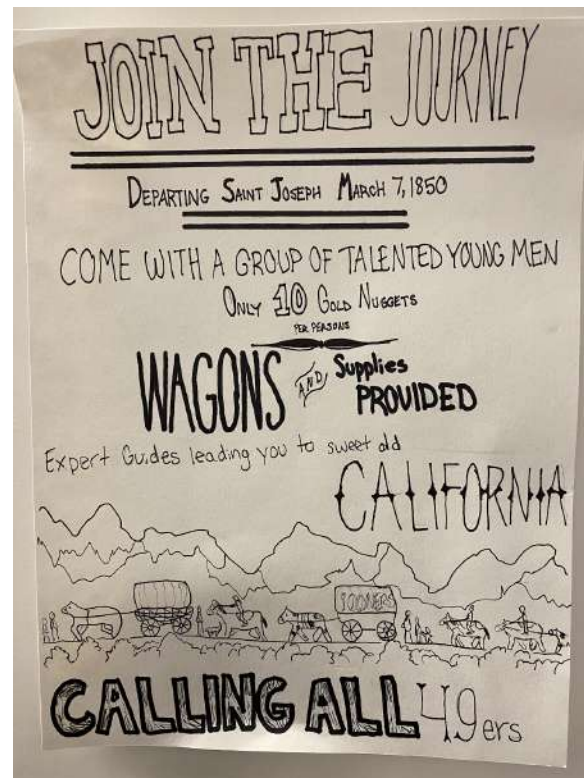 JOIN THE JOURNEY
DEPARTING SAINT JOSEPH MARCH 7, 1850
COME WITH A GROUP OF TALENTED YOUNG MEN
ONLY 10 GOLD NUGGETS
PER PERSONS
WAGONS AND Supplies
PROVIDED
Expert Guides leading you to sweet old
CALIFORNIA
SOONERS
CALLING ALL 49ers